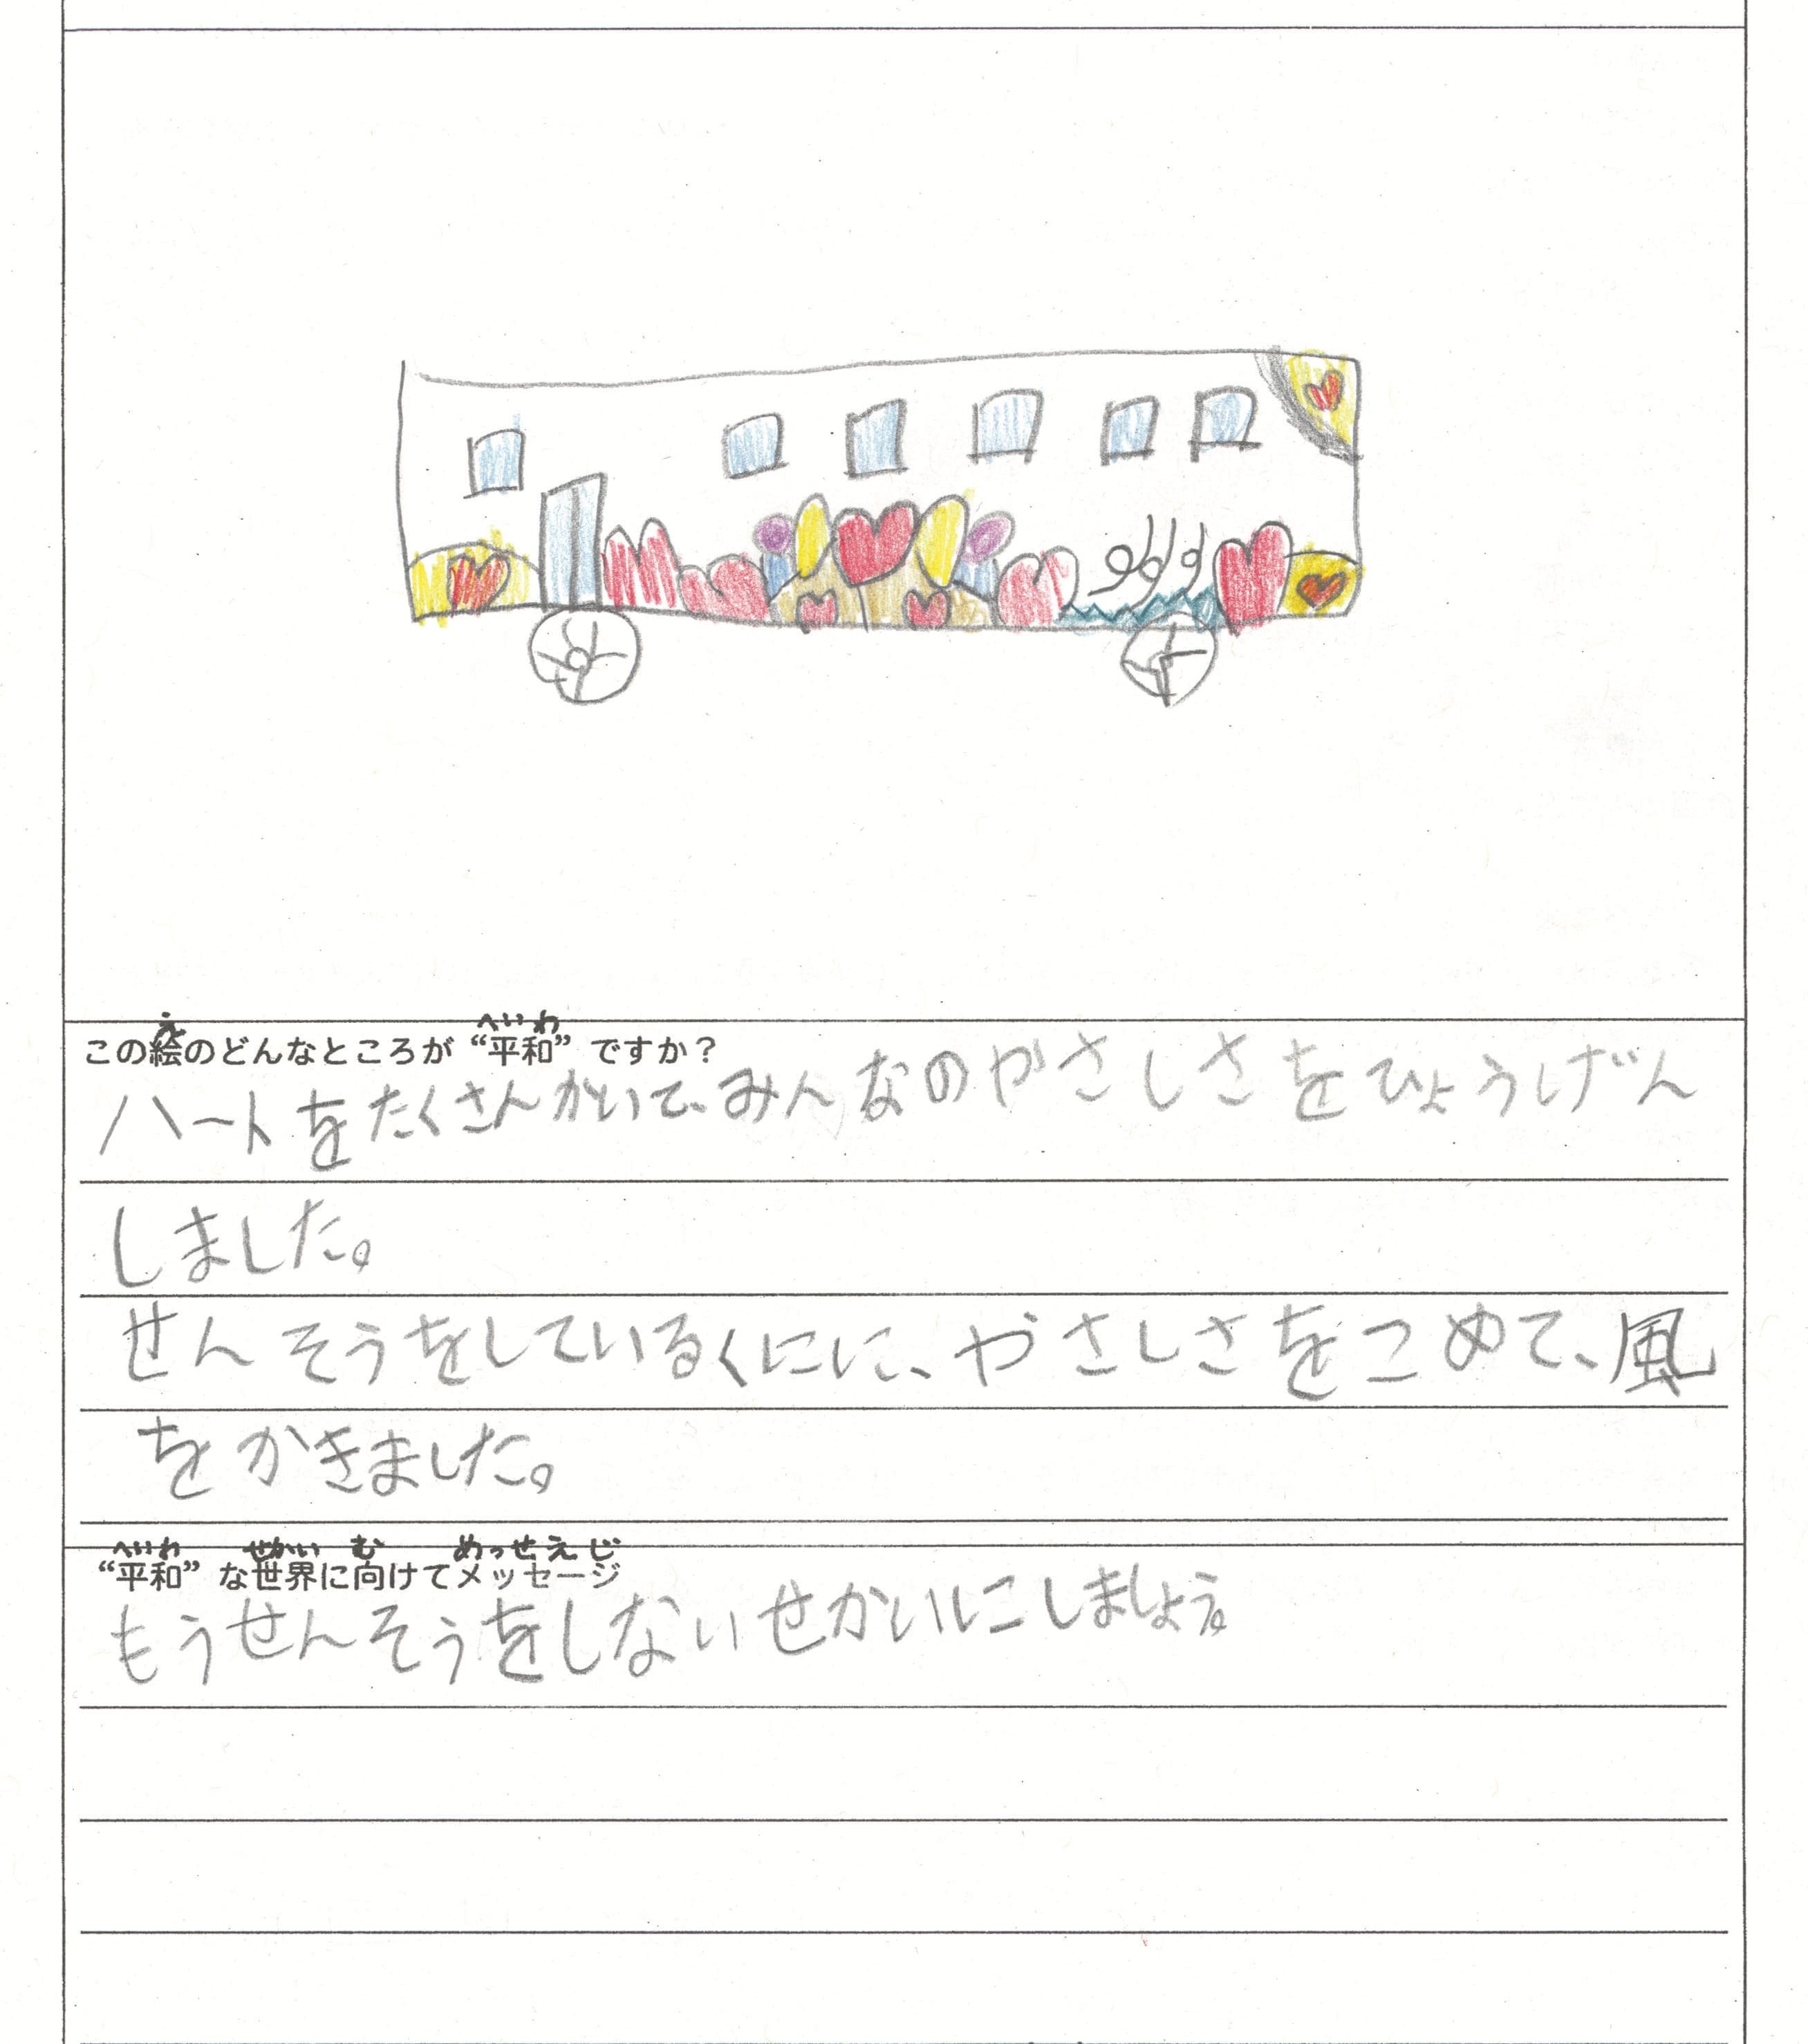 えへいわ
この絵のどんなところが“平和”ですか？
ハートをたくさんかいて、みんなのやさしさをひょうげん
しました。
せんそうをしているくにに、やさしさをこめて、風
をかきました。
へいわ せかい む めっせえじ
“平和”な世界に向けてメッセージ
もうせんそうをしないせかいにしましょう。